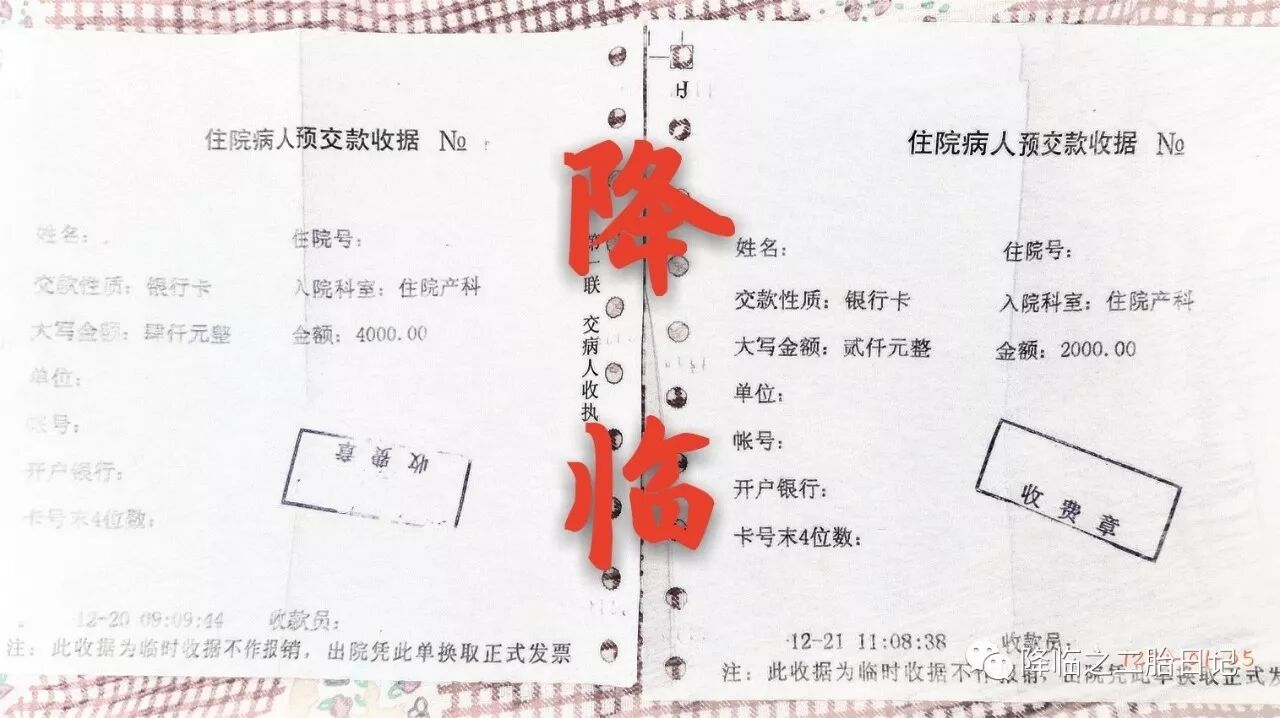 住院病人预交款收据 №
姓名：
住院号：
交款性质：银行卡
入院科室：住院产科
大写金额：肆仟元整
金额：4000.00
单位：
帐号：
开户银行：
卡号末4位数：
收费章
12-20 09:09:44
收款员：
注：此收据为临时收据不作报销，出院凭此单换取正式发票
第一联 交病人收执
降
临
住院病人预交款收据 №
姓名：
住院号：
交款性质：银行卡
入院科室：住院产科
大写金额：贰仟元整
金额：2000.00
单位：
帐号：
开户银行：
卡号末4位数：
收费章
12-21 11:08:38
收款员：
注：此收据为临时收据不作报销，出院凭此单换取正式发
降临之二胎日记